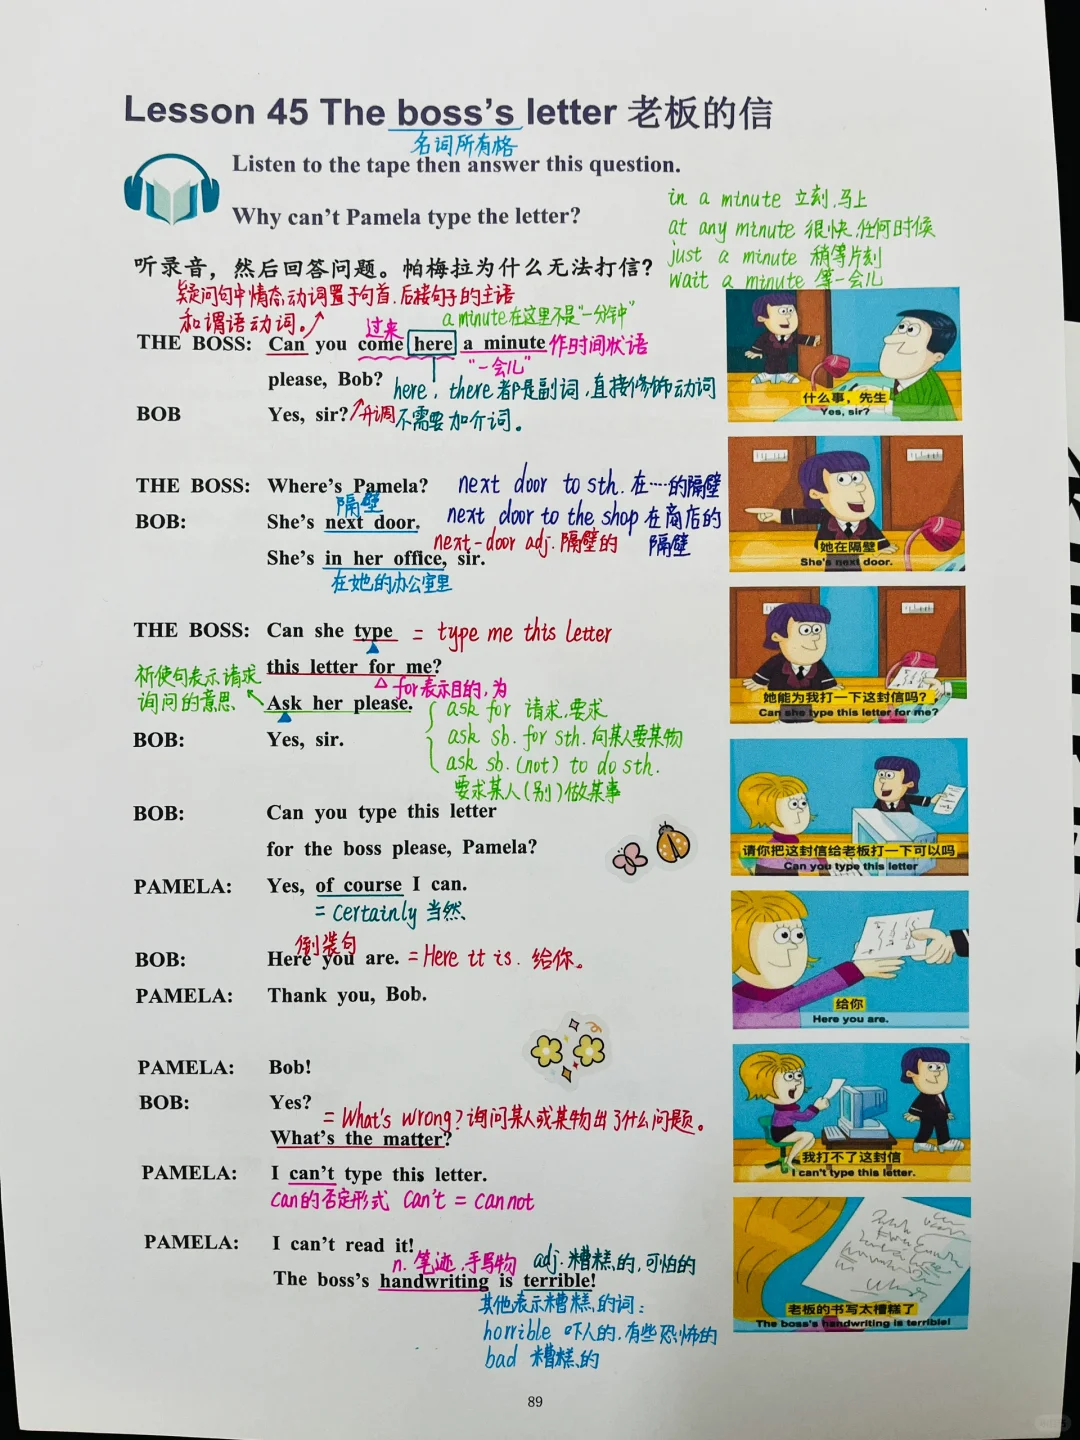 Lesson 45 The boss's letter 老板的信
名词所有格
Listen to the tape then answer this question.
Why can't Pamela type the letter?
in a minute 立刻,马上
at any minute 很快,任何时候
just a minute 稍等片刻
wait a minute 等一会儿
听录音，然后回答问题。帕梅拉为什么无法打信?
疑问句中情态动词置于句首,后接句子的主语
和谓语动词。
过来
a minute在这里不是"一分钟"
THE BOSS: Can you come here a minute 作时间状语
"一会儿"
please, Bob?
here, there都是副词,直接修饰动词
不需要加介词。
BOB Yes, sir? 升调
什么事，先生
Yes, sir?
THE BOSS: Where's Pamela?
next door to sth. 在……的隔壁
隔壁
BOB: She's next door.
next door to the shop 在商店的
隔壁
next-door adj. 隔壁的
She's in her office, sir.
在她的办公室里
她在隔壁
She's next door.
THE BOSS: Can she type = type me this letter
this letter for me?
for表示目的,为
祈使句表示请求
询问的意思
Ask her please.
ask for 请求,要求
ask sb. for sth. 向某人要某物
ask sb. (not) to do sth.
要求某人(别)做某事
BOB: Yes, sir.
她能为我打一下这封信吗?
Can she type this letter for me?
BOB: Can you type this letter
for the boss please, Pamela?
PAMELA: Yes, of course I can.
= certainly 当然
请你把这封信给老板打一下可以吗
Can you type this letter
倒装句
BOB: Here you are. = Here it is. 给你。
PAMELA: Thank you, Bob.
给你
Here you are.
PAMELA: Bob!
BOB: Yes?
= What's wrong? 询问某人或某物出了什么问题。
What's the matter?
PAMELA: I can't type this letter.
can的否定形式 can't = cannot
我打不了这封信
I can't type this letter.
PAMELA: I can't read it!
n. 笔迹,手写物 adj. 糟糕的,可怕的
The boss's handwriting is terrible!
其他表示糟糕的词:
horrible 吓人的,有些恐怖的
bad 糟糕的
老板的书写太糟糕了
The boss's handwriting is terrible!
89